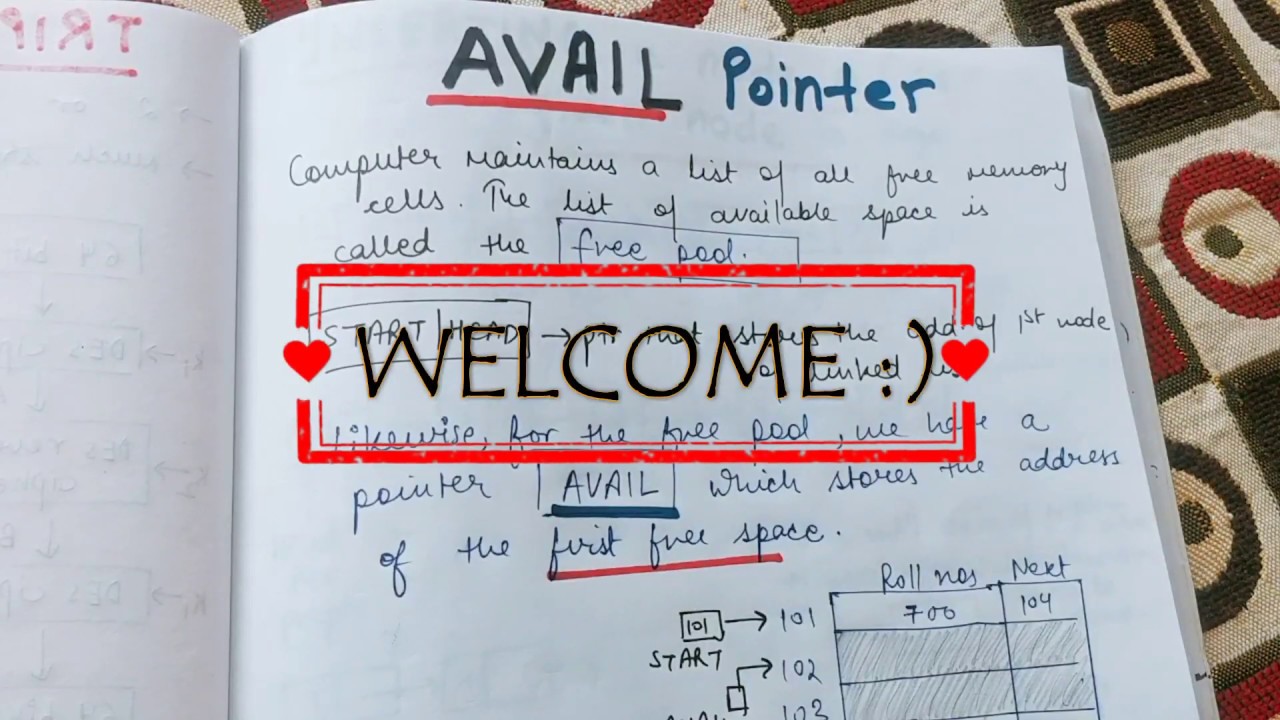 AVAIL Pointer
Computer maintains a list of all free memory
cells. The list of available space is
called the free pool.
START/HEAD → ptr that stores the add. of 1st node
of linked list
WELCOME :)
Likewise, for the free pool, we have a
pointer AVAIL which stores the address
of the first free space.
Roll nos Next
101 → 101 700 104
START
102
103
TRIP
64 bit
DES
DES
DES